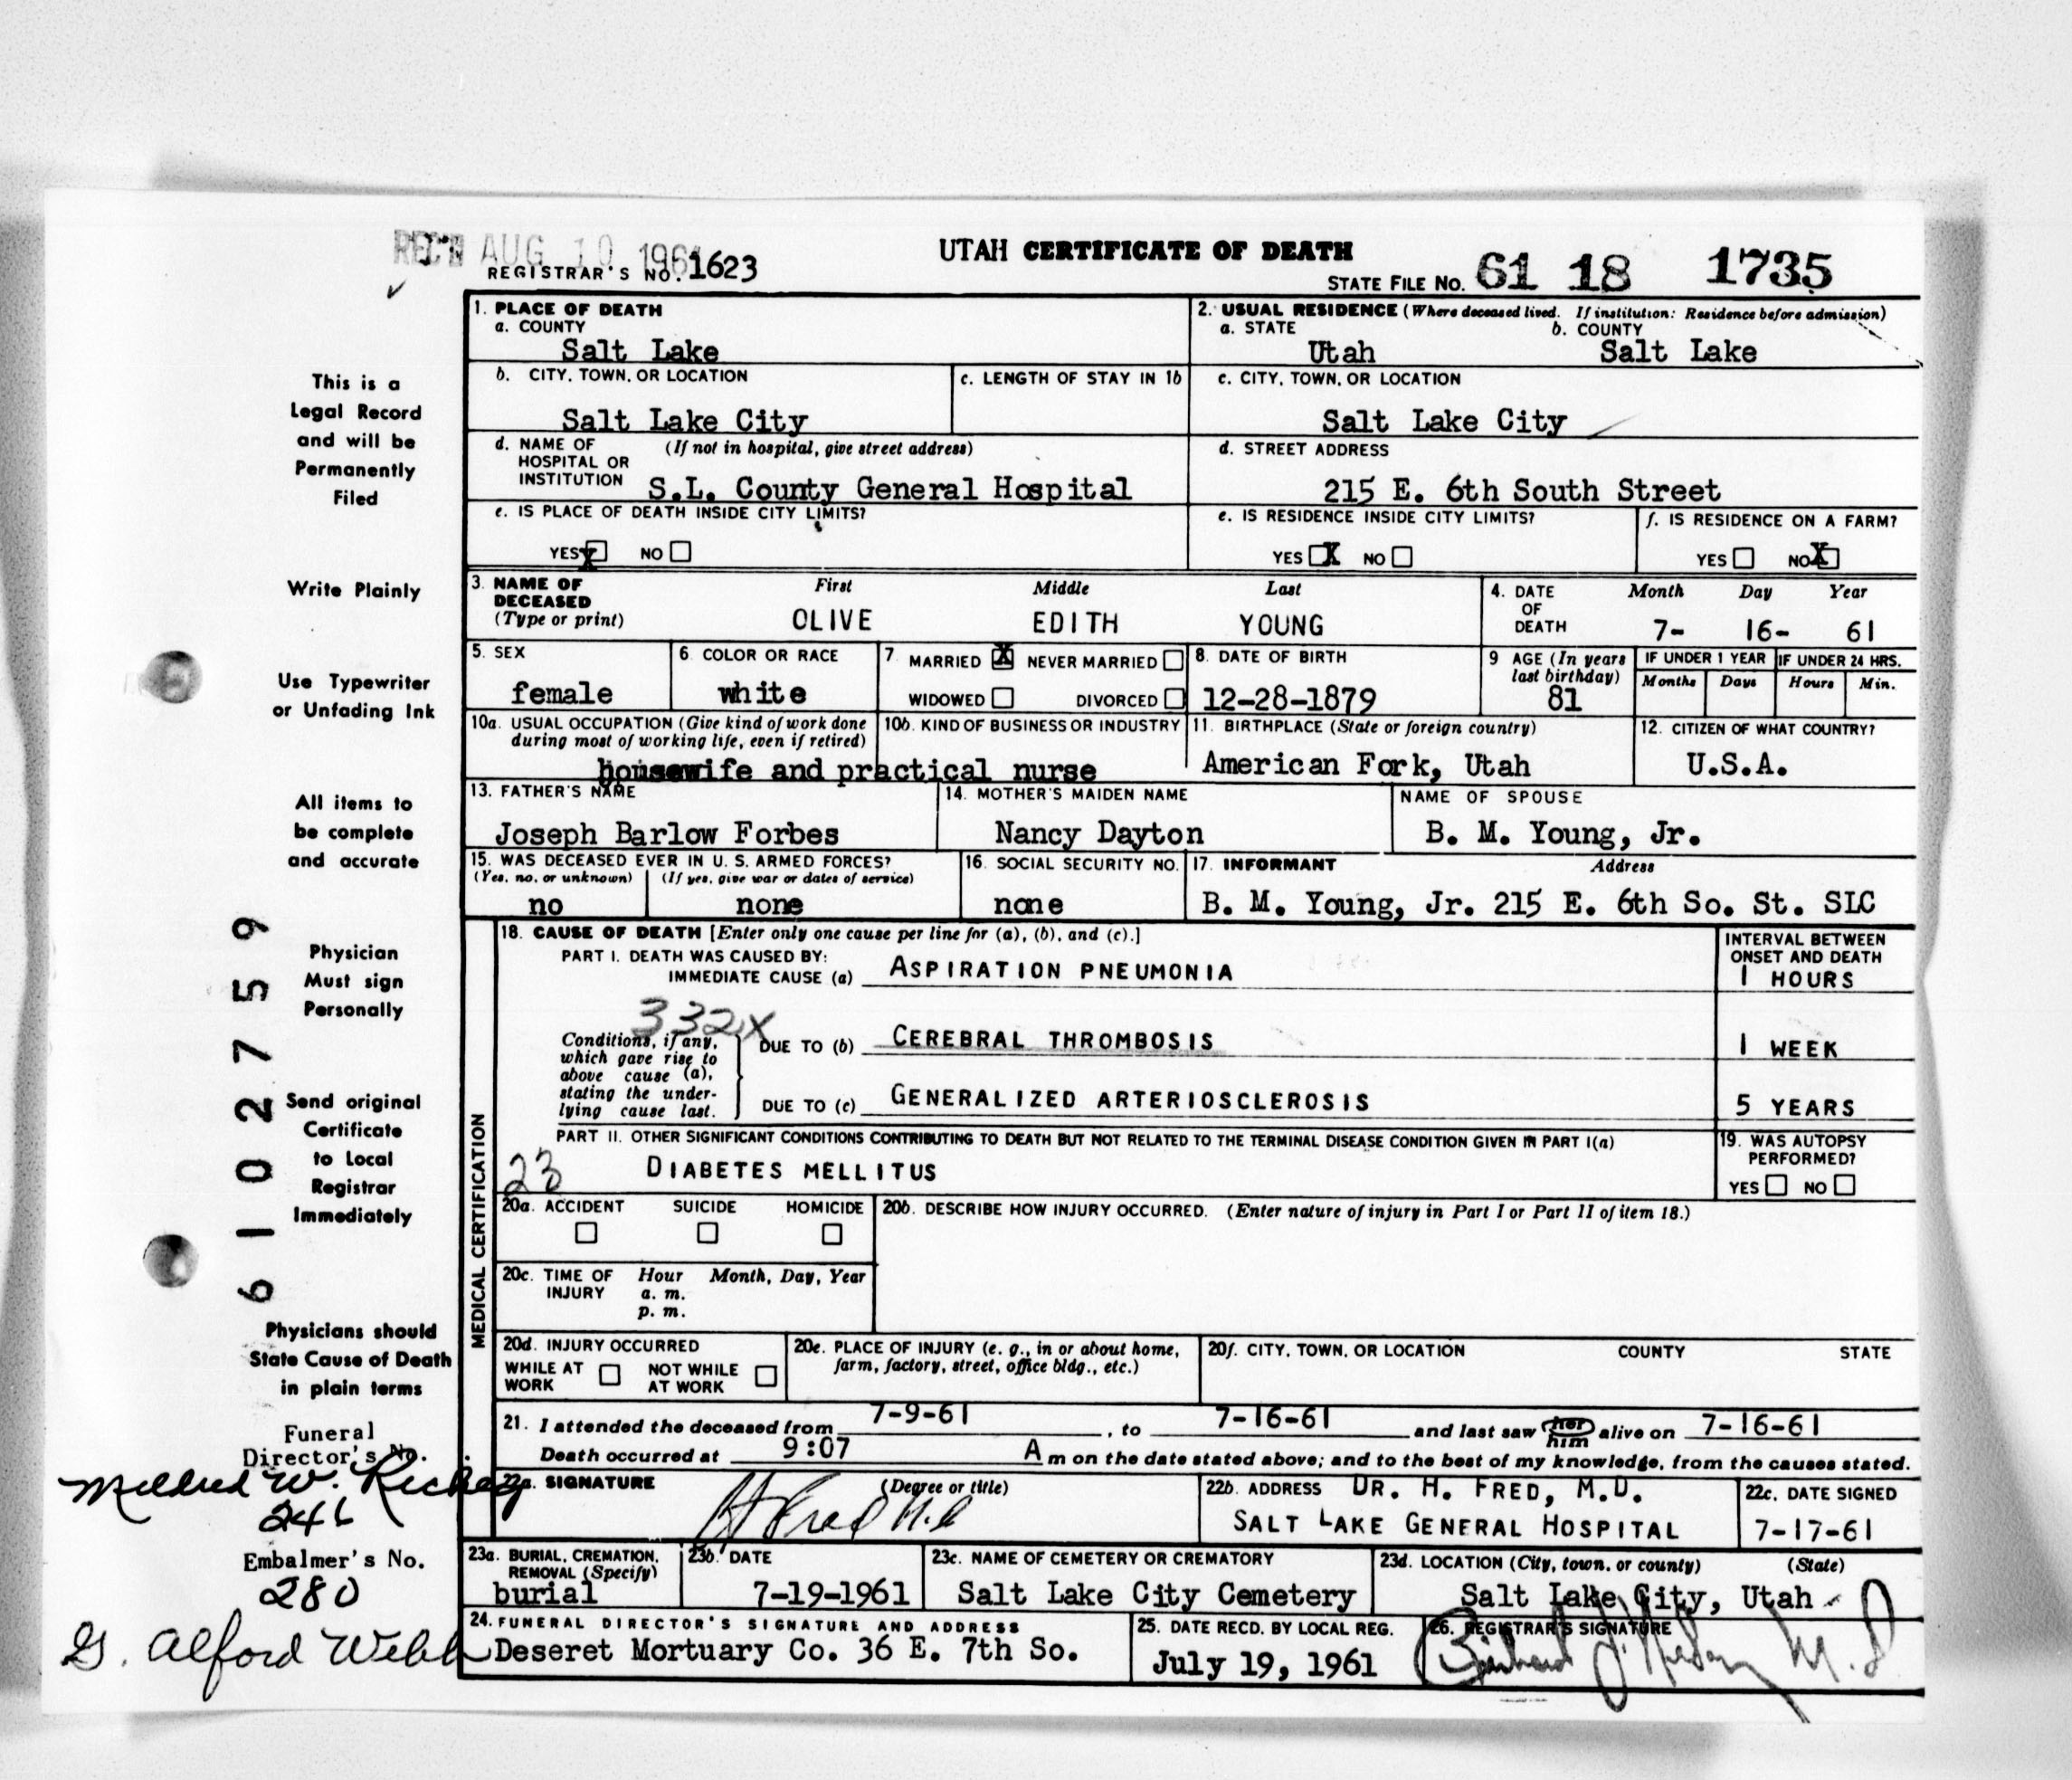 REC'D AUG 10 1961
UTAH CERTIFICATE OF DEATH
REGISTRAR'S NO. 1623
STATE FILE NO. 61 18 1735
This is a
Legal Record
and will be
Permanently
Filed
Write Plainly
Use Typewriter
or Unfading Ink
All items to
be complete
and accurate
Physician
Must sign
Personally
Send original
Certificate
to Local
Registrar
Immediately
Physicians should
State Cause of Death
in plain terms
6102759
Funeral
Director's No.
Mildred W.
246
Embalmer's No.
280
G. Alford Webb
1. PLACE OF DEATH
a. COUNTY
Salt Lake
2. USUAL RESIDENCE (Where deceased lived. If institution: Residence before admission)
a. STATE b. COUNTY
Utah Salt Lake
b. CITY, TOWN, OR LOCATION c. LENGTH OF STAY IN 1b
Salt Lake City
c. CITY, TOWN, OR LOCATION
Salt Lake City
d. NAME OF (If not in hospital, give street address)
HOSPITAL OR
INSTITUTION S.L. County General Hospital
d. STREET ADDRESS
215 E. 6th South Street
e. IS PLACE OF DEATH INSIDE CITY LIMITS?
YES X NO
e. IS RESIDENCE INSIDE CITY LIMITS?
YES X NO
f. IS RESIDENCE ON A FARM?
YES NO X
3. NAME OF DECEASED First Middle Last
(Type or print) OLIVE EDITH YOUNG
4. DATE OF DEATH Month Day Year
7- 16- 61
5. SEX
female
6. COLOR OR RACE
white
7. MARRIED X NEVER MARRIED
WIDOWED DIVORCED
8. DATE OF BIRTH
12-28-1879
9 AGE (In years
last birthday)
81
IF UNDER 1 YEAR IF UNDER 24 HRS.
Months Days Hours Min.
10a. USUAL OCCUPATION (Give kind of work done
during most of working life, even if retired)
10b. KIND OF BUSINESS OR INDUSTRY
housewife and practical nurse
11. BIRTHPLACE (State or foreign country)
American Fork, Utah
12. CITIZEN OF WHAT COUNTRY?
U.S.A.
13. FATHER'S NAME
Joseph Barlow Forbes
14. MOTHER'S MAIDEN NAME
Nancy Dayton
NAME OF SPOUSE
B. M. Young, Jr.
15. WAS DECEASED EVER IN U. S. ARMED FORCES?
(Yes, no, or unknown) (If yes, give war or dates of service)
no none
16. SOCIAL SECURITY NO.
none
17. INFORMANT Address
B. M. Young, Jr. 215 E. 6th So. St. SLC
MEDICAL CERTIFICATION
18. CAUSE OF DEATH [Enter only one cause per line for (a), (b), and (c).]
PART I. DEATH WAS CAUSED BY:
IMMEDIATE CAUSE (a) ASPIRATION PNEUMONIA
INTERVAL BETWEEN
ONSET AND DEATH
1 HOURS
332X
Conditions, if any,
which gave rise to
above cause (a),
stating the under-
lying cause last.
DUE TO (b) CEREBRAL THROMBOSIS 1 WEEK
DUE TO (c) GENERALIZED ARTERIOSCLEROSIS 5 YEARS
PART II. OTHER SIGNIFICANT CONDITIONS CONTRIBUTING TO DEATH BUT NOT RELATED TO THE TERMINAL DISEASE CONDITION GIVEN IN PART I(a)
23 DIABETES MELLITUS
19. WAS AUTOPSY
PERFORMED?
YES NO
20a. ACCIDENT SUICIDE HOMICIDE
20b. DESCRIBE HOW INJURY OCCURRED. (Enter nature of injury in Part I or Part II of item 18.)
20c. TIME OF INJURY Hour Month, Day, Year
a. m.
p. m.
20d. INJURY OCCURRED
WHILE AT WORK NOT WHILE AT WORK
20e. PLACE OF INJURY (e. g., in or about home,
farm, factory, street, office bldg., etc.)
20f. CITY, TOWN, OR LOCATION COUNTY STATE
21. I attended the deceased from 7-9-61, to 7-16-61 and last saw her him alive on 7-16-61
Death occurred at 9:07 A m on the date stated above; and to the best of my knowledge, from the causes stated.
22a. SIGNATURE (Degree or title)
H Fred M.D
22b. ADDRESS DR. H. FRED, M.D.
SALT LAKE GENERAL HOSPITAL
22c. DATE SIGNED
7-17-61
23a. BURIAL, CREMATION,
REMOVAL (Specify)
burial
23b. DATE
7-19-1961
23c. NAME OF CEMETERY OR CREMATORY
Salt Lake City Cemetery
23d. LOCATION (City, town, or county) (State)
Salt Lake City, Utah
24. FUNERAL DIRECTOR'S SIGNATURE AND ADDRESS
Deseret Mortuary Co. 36 E. 7th So.
25. DATE RECD. BY LOCAL REG.
July 19, 1961
26. REGISTRAR'S SIGNATURE
M.D